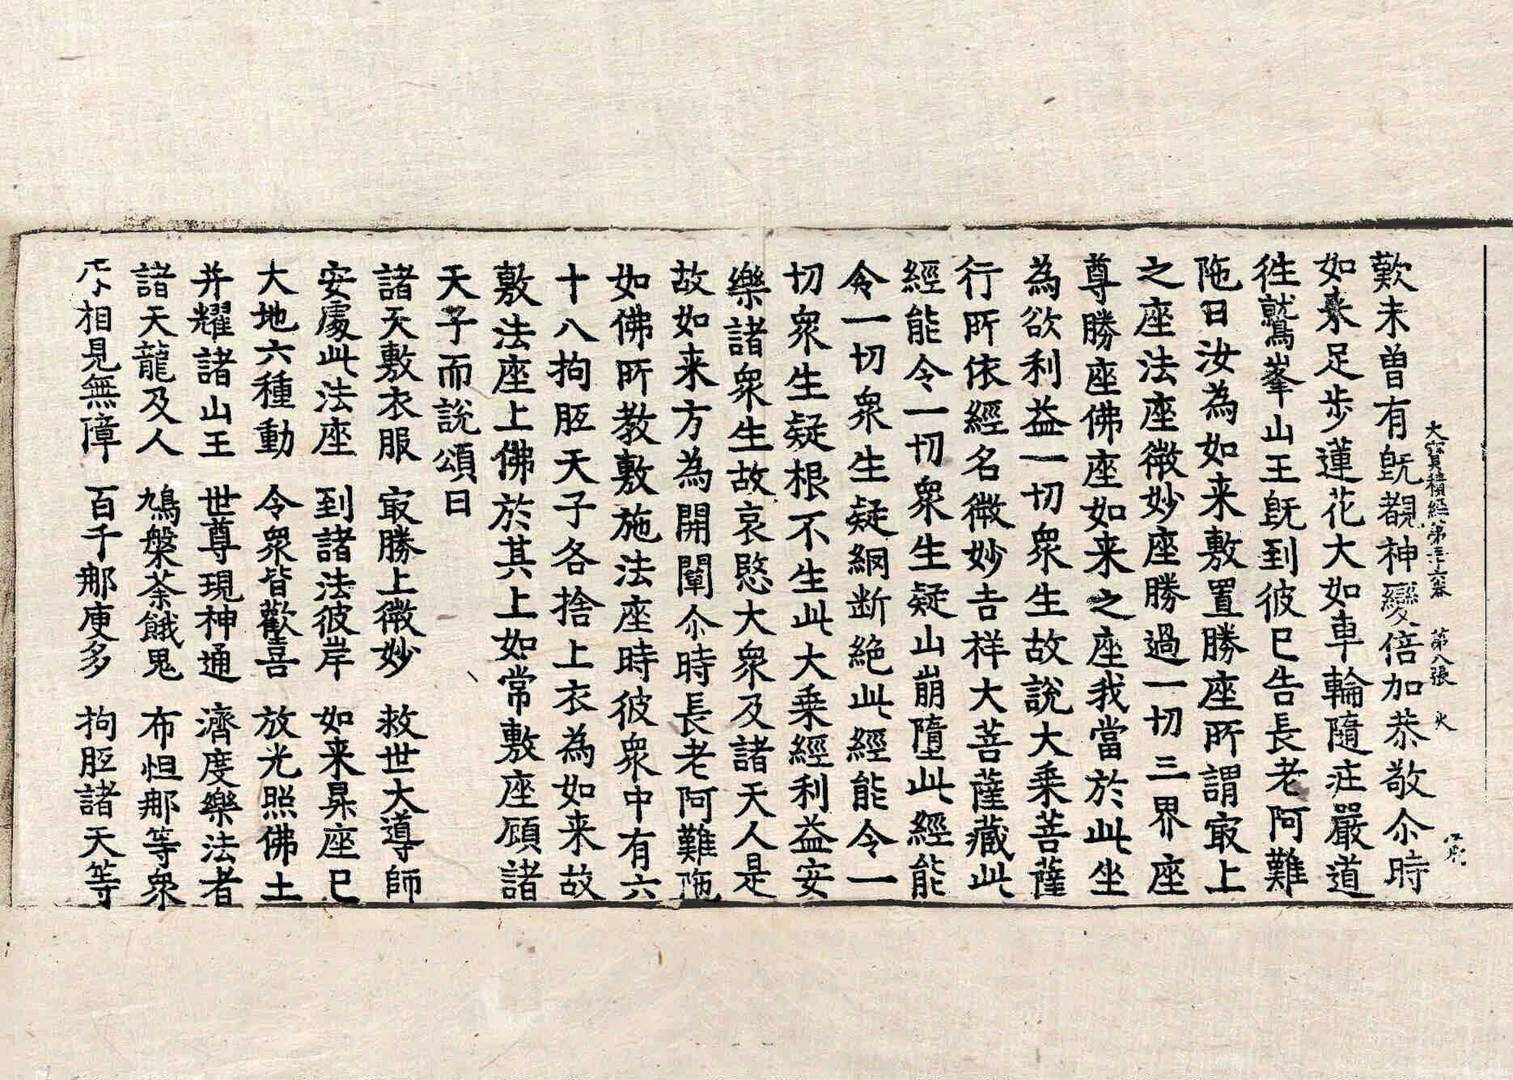 歎未曽有旣覩神變倍加恭敬尒時
如來足步蓮花大如車輪隨疰嚴道
徃鷲峯山王旣到彼已告長老阿難
陁曰汝為如来敷置勝座所謂㝡上
之座法座微妙座勝過一切三界座
尊勝座佛座如来之座我當於此坐
為欲利益一切衆生故說大乗菩薩
行所依經名微妙吉祥大菩薩藏此
經能令一切衆生疑山崩墮此經能
令一切衆生疑網断絶此經能令一
切衆生疑根不生此大乗經利益安
樂諸衆生故哀愍大衆及諸天人是
故如来方為開闡尒時長老阿難陁
如佛所教敷施法座時彼衆中有六
十八拘胝天子各捨上衣為如来故
敷法座上佛於其上如常敷座顧諸
天子而說頌曰
諸天敷衣服 㝡勝上微妙 救世大導師
安處此法座 到諸法彼岸 如来昇座已
大地六種動 令衆皆歡喜 放光照佛土
并耀諸山王 世尊現神通 濟度樂法者
諸天龍及人 鳩槃荼餓鬼 布怛那等衆
相見無障 百千那庾多 拘胝諸天等
大寶積經第三十六卷 第八張 火